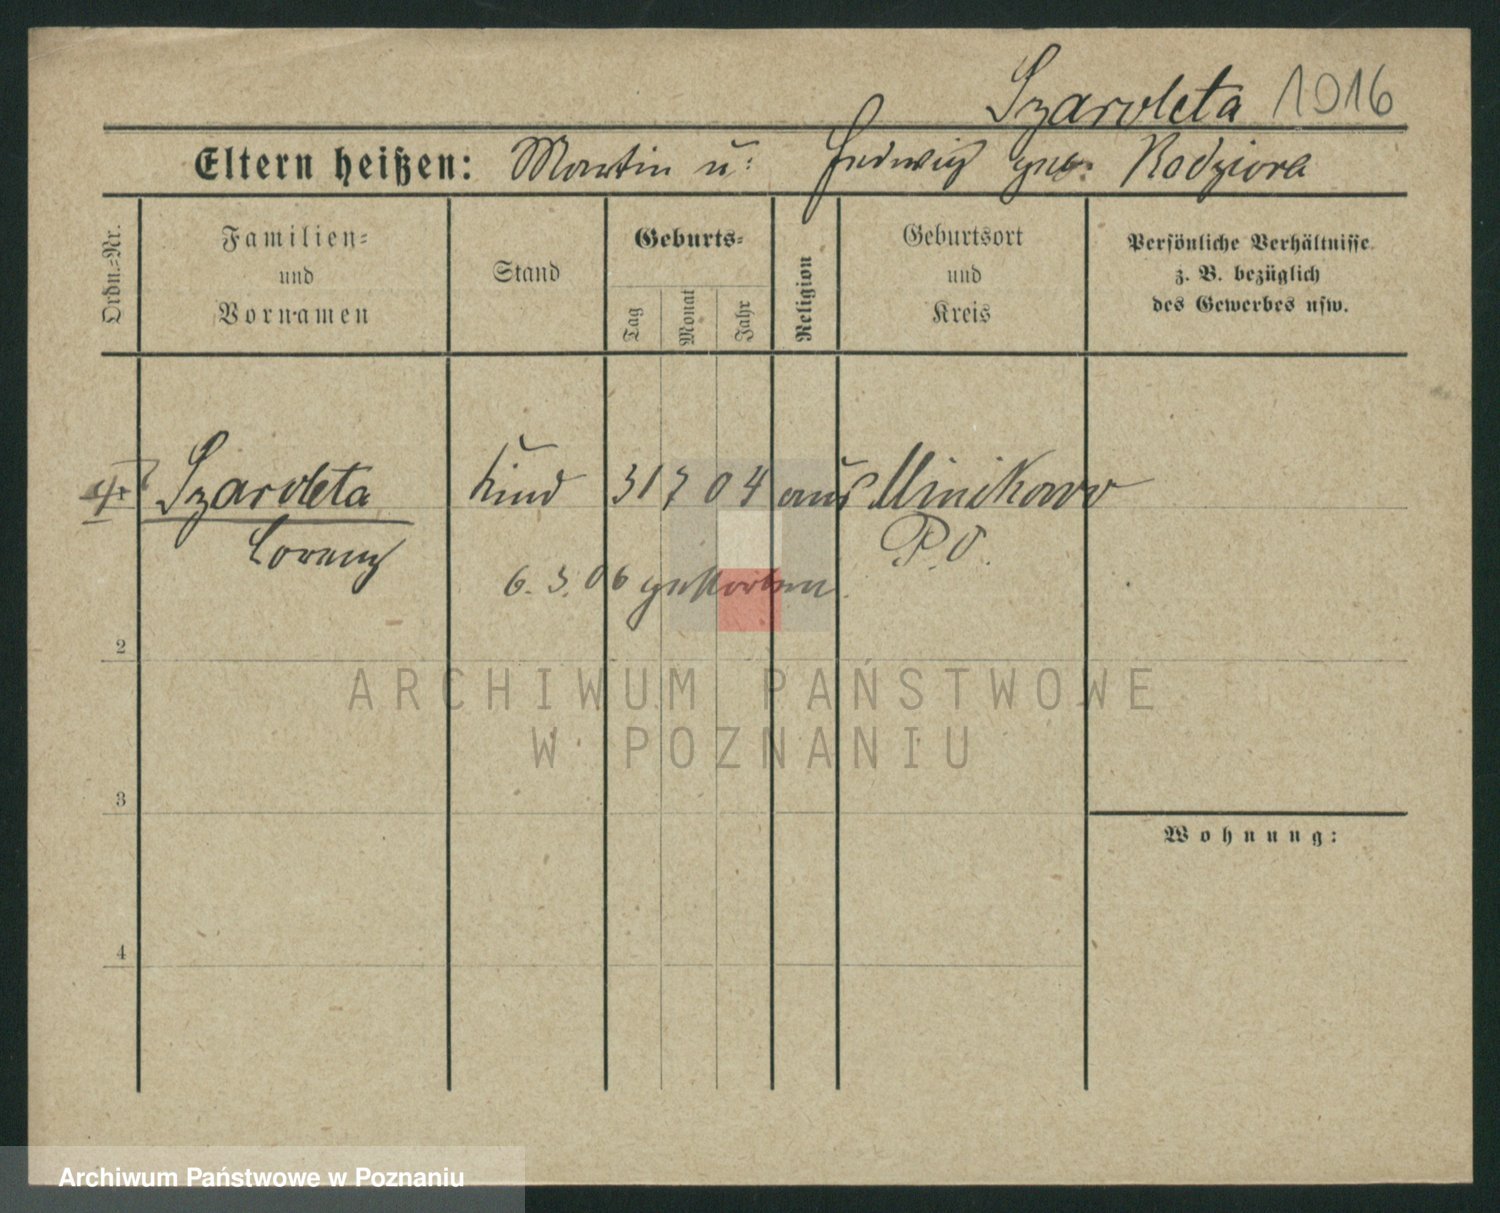 Szarvleta 1016
Eltern heißen: Martin u: Hedwig geb: Radziora
Ordn.-Nr.
Familien-
und
Vornamen
Stand
Geburts-
Tag
Monat
Jahr
Religion
Geburtsort
und
Kreis
Persönliche Verhältnisse
z. B. bezüglich
des Gewerbes usw.
Szarvleta Kind 31 7 04 Minikowo
Lorenz P.O.
6. 3. 06 gestorben.
2
3
4
Wohnung:
ARCHIWUM PAŃSTWOWE
W POZNANIU
Archiwum Państwowe w Poznaniu